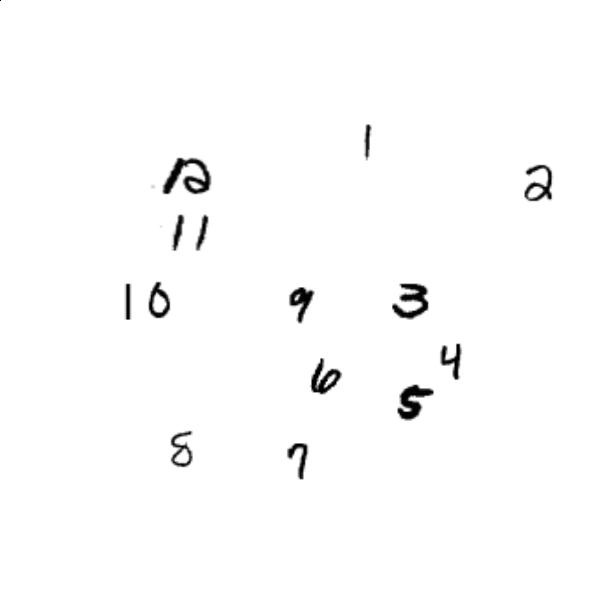 1
12 2
11
10 9 3
6 4
5
8 7